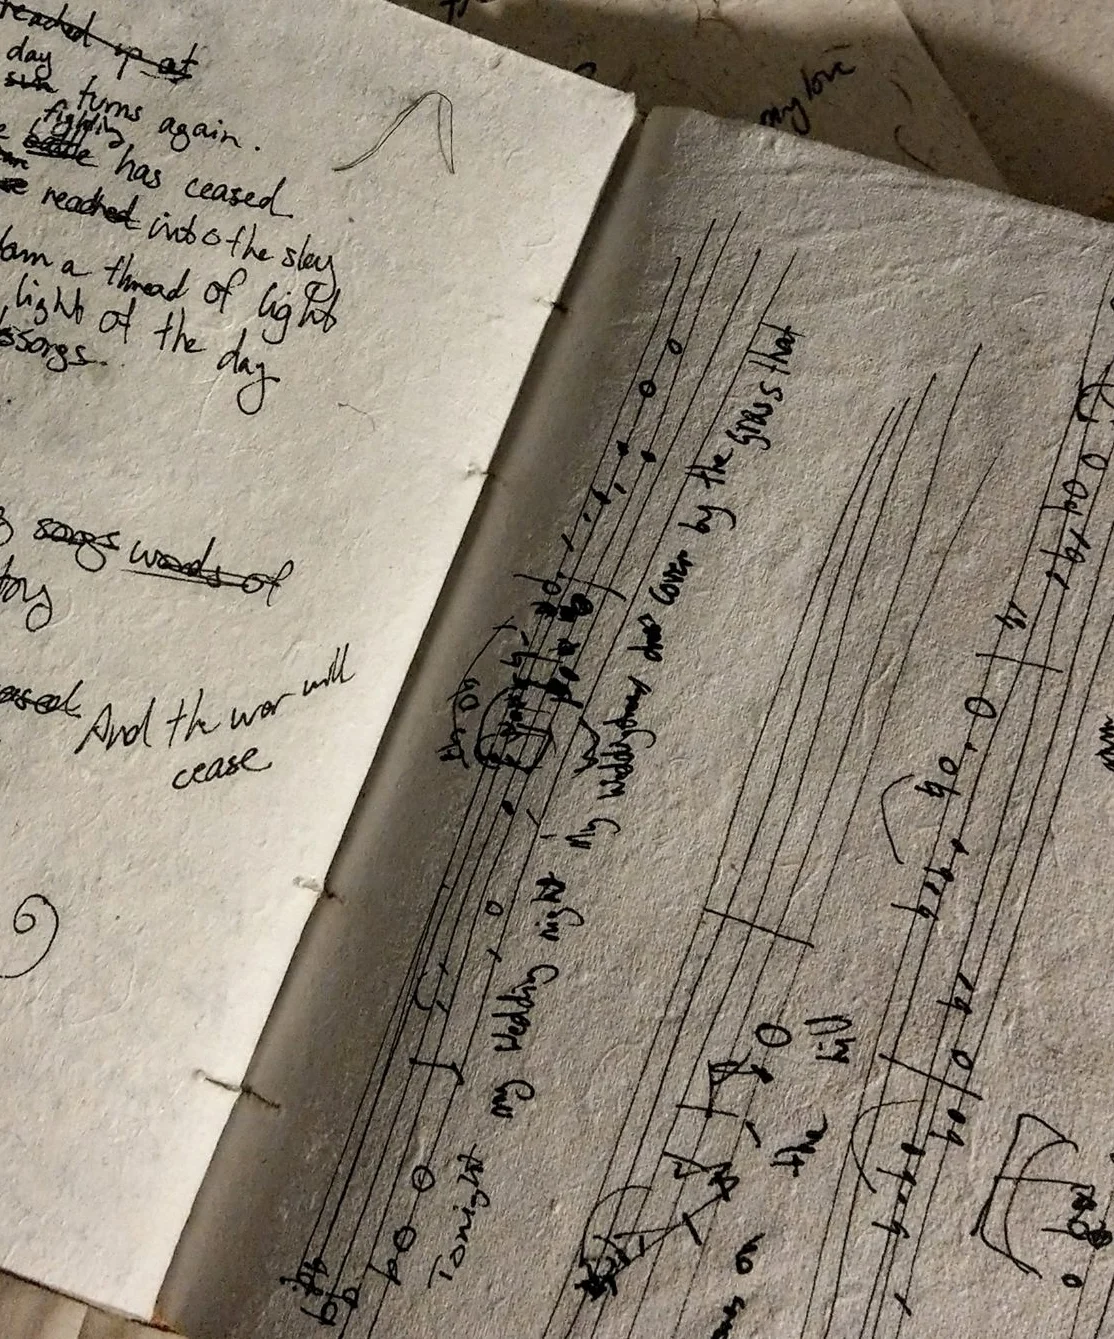 reached up at
day
sun turns again.
fighting
battle has ceased
reached into the sky
a thread of light
light of the day
songs.
songs words of
And the war will
cease
my love
Tonight my wedding night My wedding dress cover by the grass that
on the hill